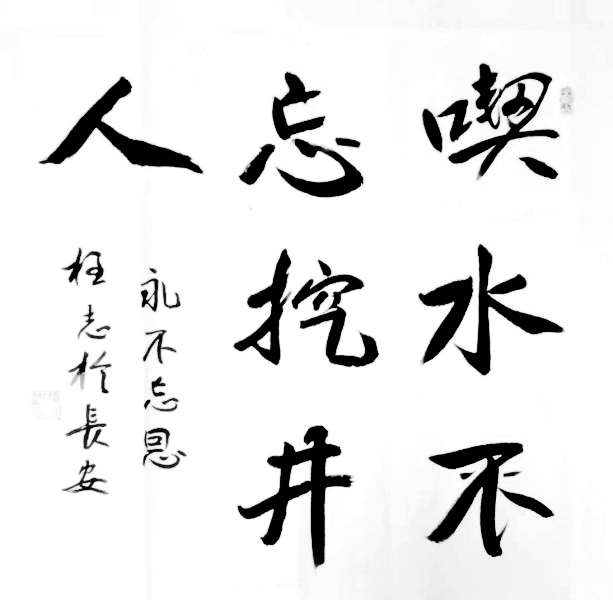 喫水不
忘挖井
人
永不忘恩
志於長安